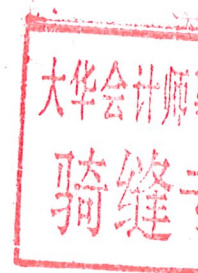 大华会计师
骑缝